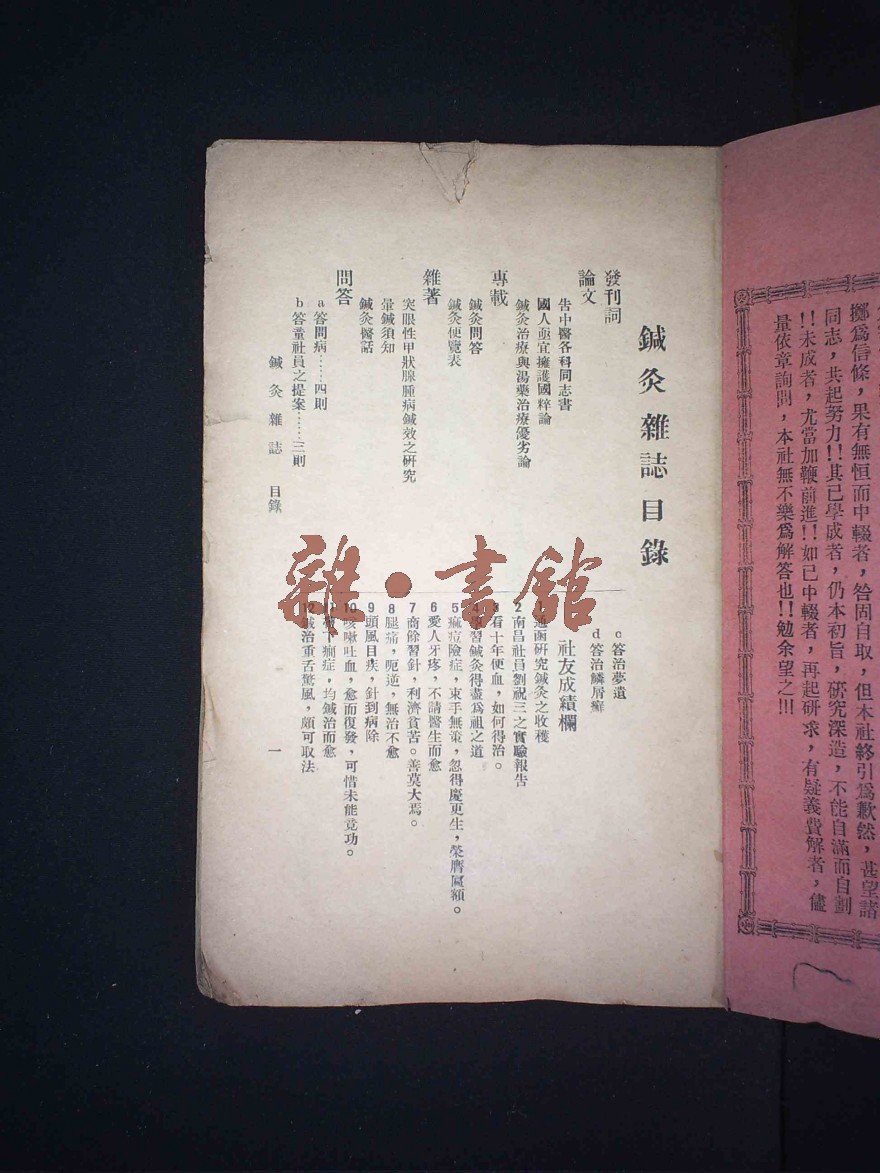 鍼灸雜誌目錄
發刊詞
論文
告中醫各科同志書
國人亟宜擁護國粹論
鍼灸治療與湯藥治療優劣論
專載
鍼灸問答
鍼灸便覽表
雜著
突眼性甲狀腺腫病鍼效之研究
暈鍼須知
鍼灸醫話
問答
a答問病……四則
b答董社員之提案……三則
c答治夢遺
d答治鱗屑癬
社友成績欄
1通函研究鍼灸之收穫
2南昌社員劉祝三之實驗報告
3看十年便血,如何得治。
學習鍼灸得盡爲祖之道
5瘰痘險症,束手無策,忽得慶更生,榮膺匾額。
6愛人牙疼,不請醫生而愈
7商餘習針,利濟貧苦。善莫大焉。
8腿痛,呃逆,無治不愈
9頭風目疾,針到病除
10咳嗽吐血,愈而復發,可惜未能竟功。
下癇症,均鍼治而愈
12鍼治重舌驚風,頗可取法
鍼灸雜誌 目錄
一
擲爲信條,果有無恒而中輟者,咎固自取,但本社終引爲歉然,甚望諸
同志,共起努力!!其已學成者,仍本初旨,研究深造,不能自滿而自劃
!!未成者,尤當加鞭前進!!如已中輟者,再起研求,有疑義費解者,儘
量依章詢問,本社無不樂爲解答也!!勉余望之!!!
雜·書館